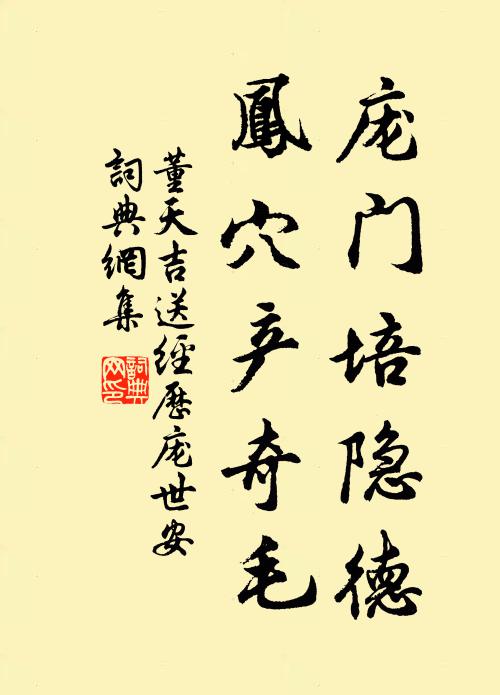 庞门培隐德
鳳穴产奇毛
董天吉送經歷庞世安
詞典網集
詞典网印